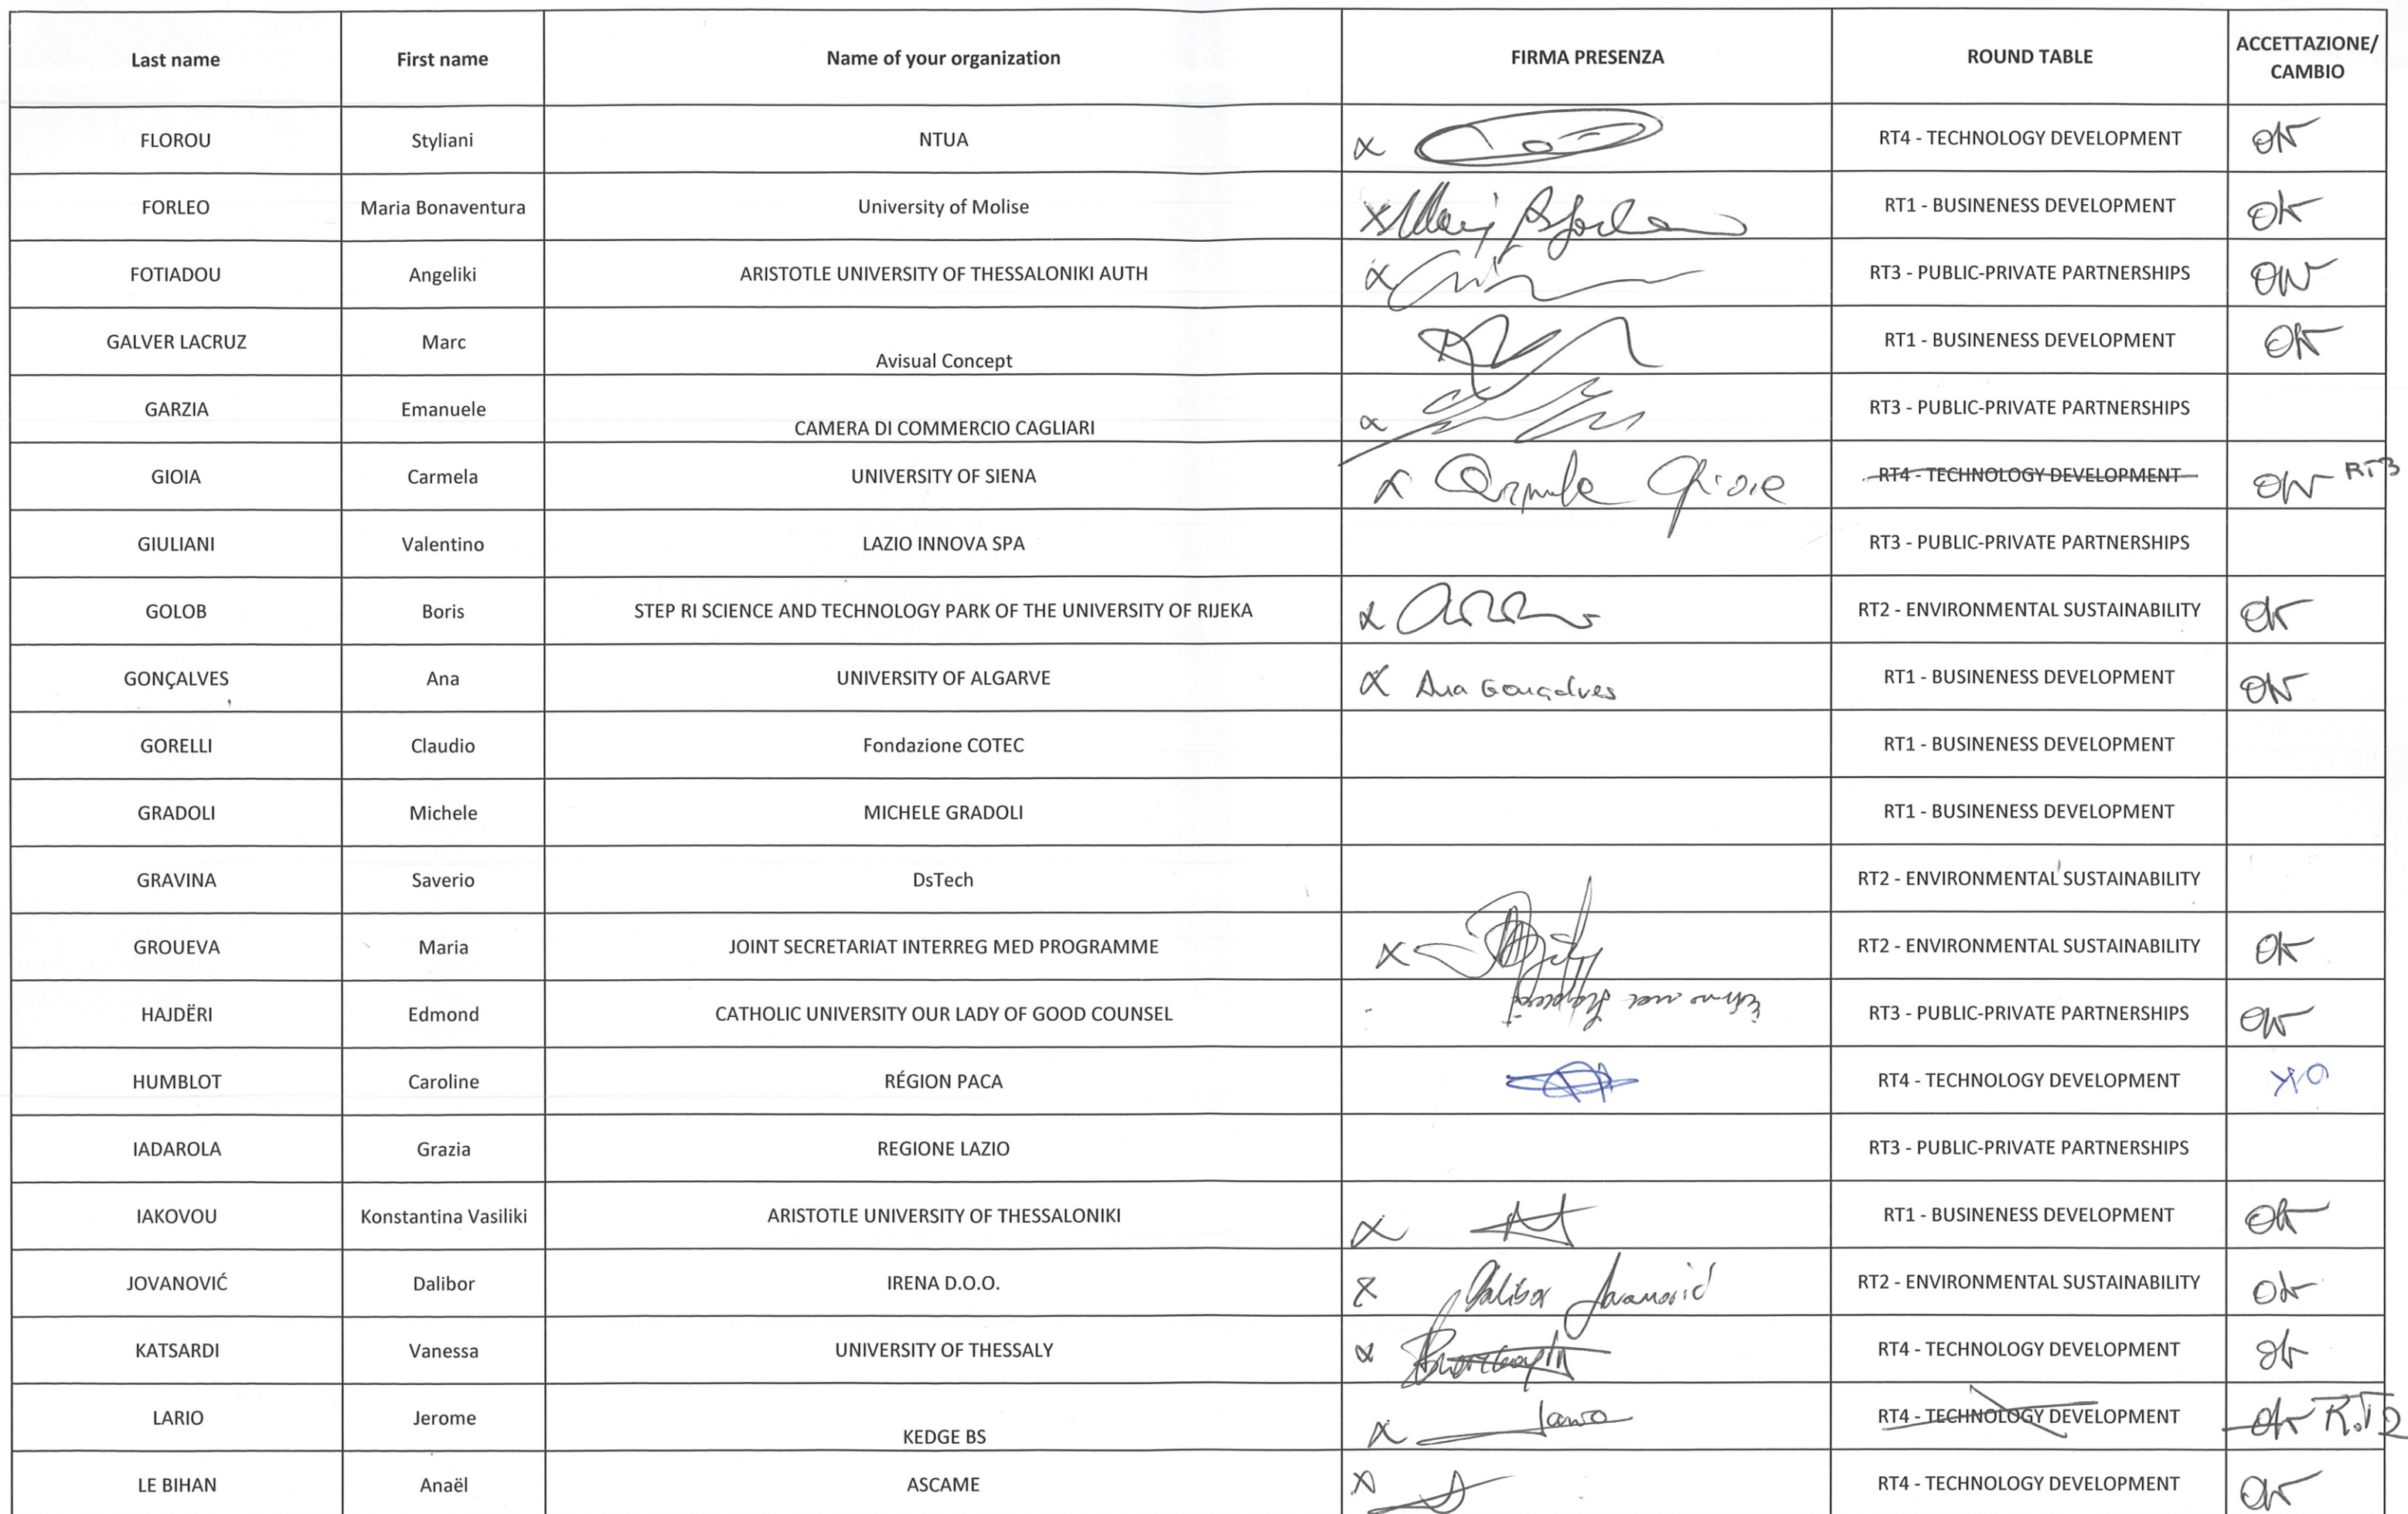 Last name First name Name of your organization FIRMA PRESENZA ROUND TABLE ACCETTAZIONE/ CAMBIO
FLOROU Styliani NTUA x RT4 - TECHNOLOGY DEVELOPMENT OK
FORLEO Maria Bonaventura University of Molise x RT1 - BUSINENESS DEVELOPMENT OK
FOTIADOU Angeliki ARISTOTLE UNIVERSITY OF THESSALONIKI AUTH x RT3 - PUBLIC-PRIVATE PARTNERSHIPS OK
GALVER LACRUZ Marc Avisual Concept RT1 - BUSINENESS DEVELOPMENT OK
GARZIA Emanuele CAMERA DI COMMERCIO CAGLIARI x RT3 - PUBLIC-PRIVATE PARTNERSHIPS
GIOIA Carmela UNIVERSITY OF SIENA x Carmela Gioia RT4 - TECHNOLOGY DEVELOPMENT OK RT3
GIULIANI Valentino LAZIO INNOVA SPA RT3 - PUBLIC-PRIVATE PARTNERSHIPS
GOLOB Boris STEP RI SCIENCE AND TECHNOLOGY PARK OF THE UNIVERSITY OF RIJEKA x RT2 - ENVIRONMENTAL SUSTAINABILITY OK
GONÇALVES Ana UNIVERSITY OF ALGARVE x Ana Gonçalves RT1 - BUSINENESS DEVELOPMENT OK
GORELLI Claudio Fondazione COTEC RT1 - BUSINENESS DEVELOPMENT
GRADOLI Michele MICHELE GRADOLI RT1 - BUSINENESS DEVELOPMENT
GRAVINA Saverio DsTech RT2 - ENVIRONMENTAL SUSTAINABILITY
GROUEVA Maria JOINT SECRETARIAT INTERREG MED PROGRAMME x RT2 - ENVIRONMENTAL SUSTAINABILITY OK
HAJDËRI Edmond CATHOLIC UNIVERSITY OUR LADY OF GOOD COUNSEL RT3 - PUBLIC-PRIVATE PARTNERSHIPS OK
HUMBLOT Caroline RÉGION PACA RT4 - TECHNOLOGY DEVELOPMENT OK
IADAROLA Grazia REGIONE LAZIO RT3 - PUBLIC-PRIVATE PARTNERSHIPS
IAKOVOU Konstantina Vasiliki ARISTOTLE UNIVERSITY OF THESSALONIKI x RT1 - BUSINENESS DEVELOPMENT OK
JOVANOVIĆ Dalibor IRENA D.O.O. x Dalibor Jovanović RT2 - ENVIRONMENTAL SUSTAINABILITY OK
KATSARDI Vanessa UNIVERSITY OF THESSALY x RT4 - TECHNOLOGY DEVELOPMENT OK
LARIO Jerome KEDGE BS x RT4 - TECHNOLOGY DEVELOPMENT OK R.T2
LE BIHAN Anaël ASCAME x RT4 - TECHNOLOGY DEVELOPMENT OK